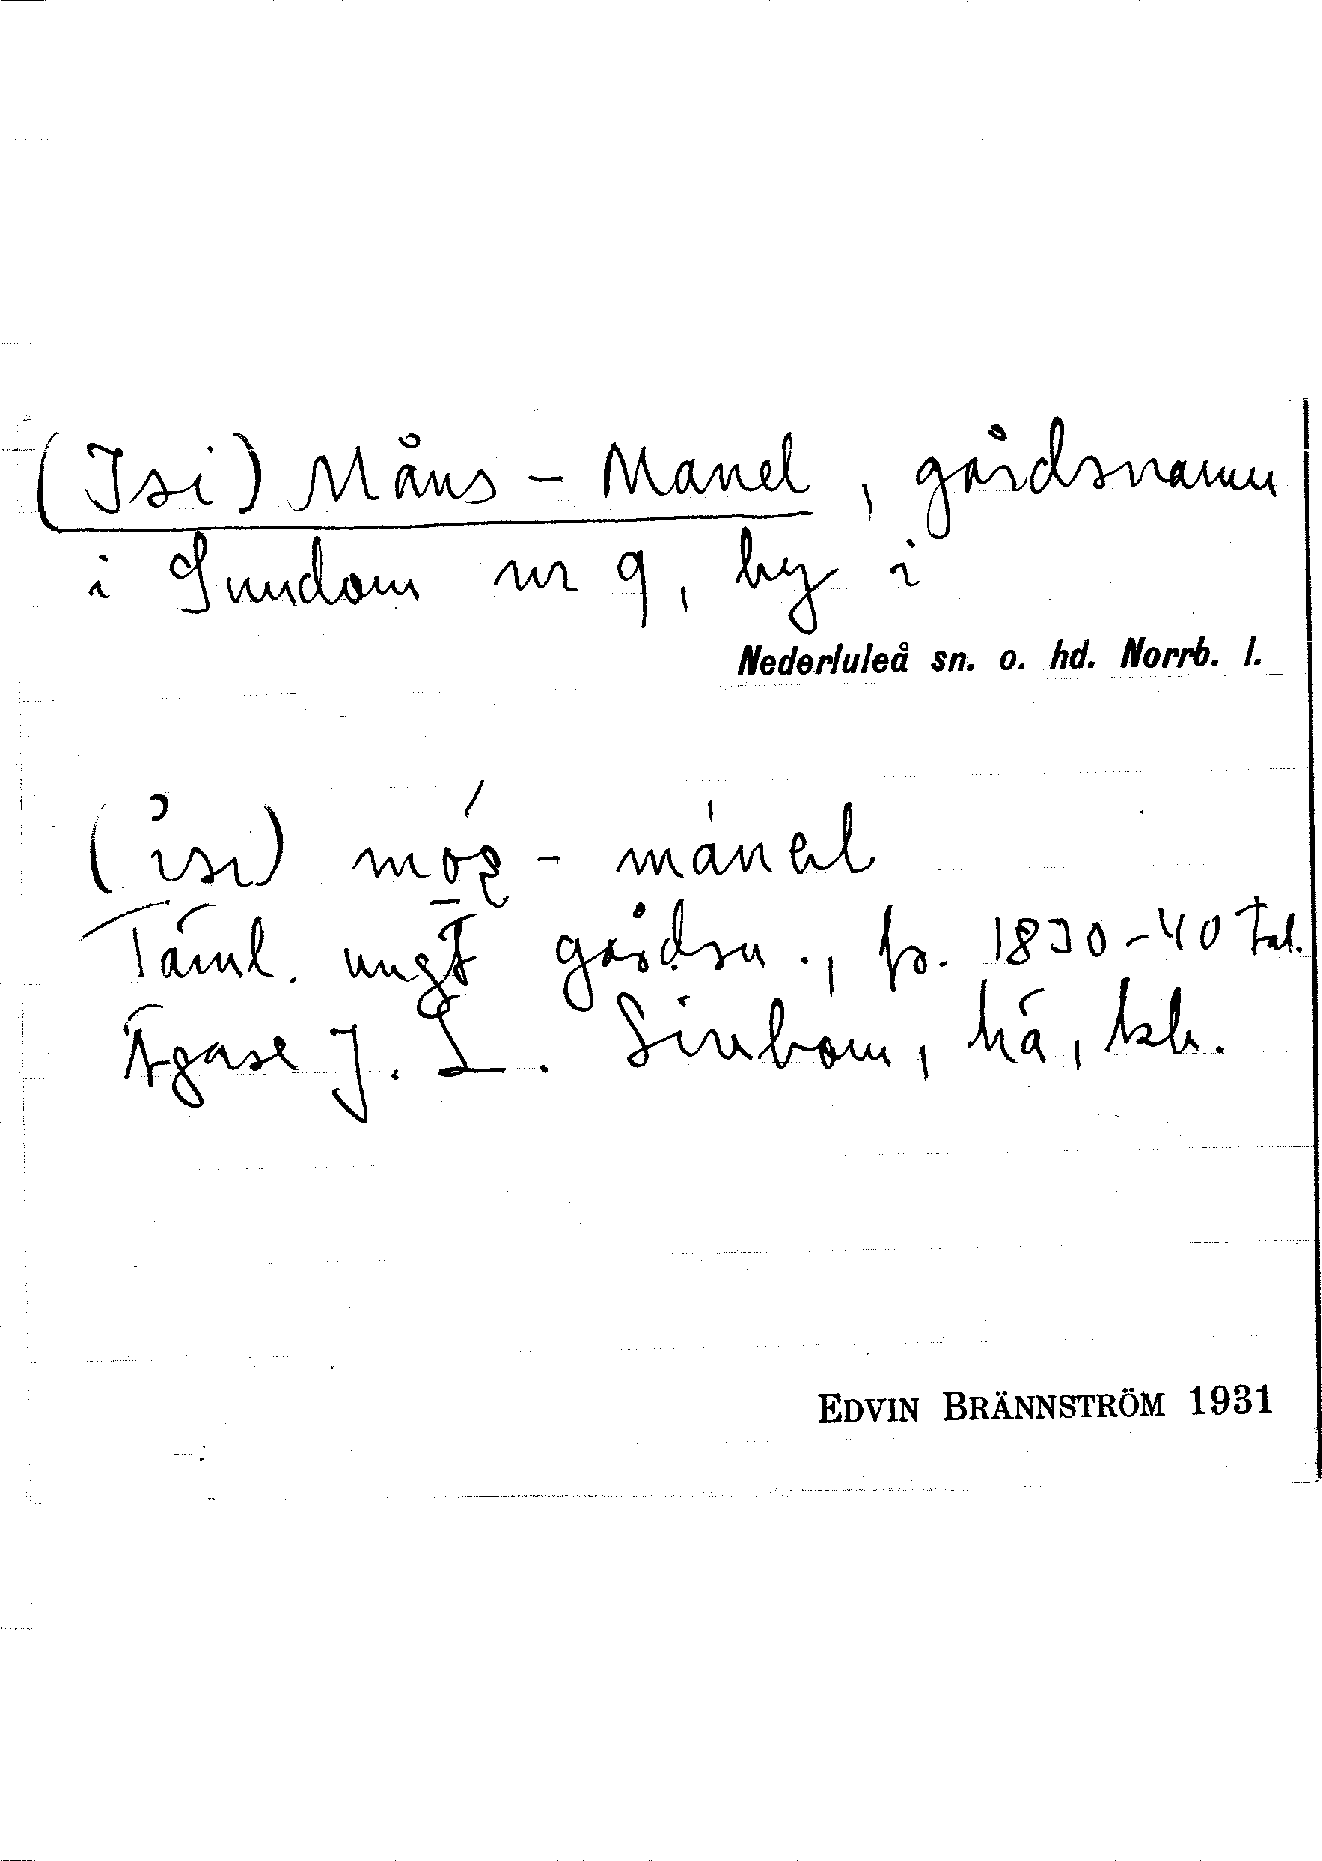 (Isi) Måns-Manel, gårdsnamn
i Sundom nr 9, by i
Nederluleå sn. o. hd. Norrb. l.
(isi) - mánɛl
Täml. ungt gårdsn., fr. 1830-40 tal.
Ägare J. L. Sirbom, hä, tsb.
EDVIN BRÄNNSTRÖM 1931